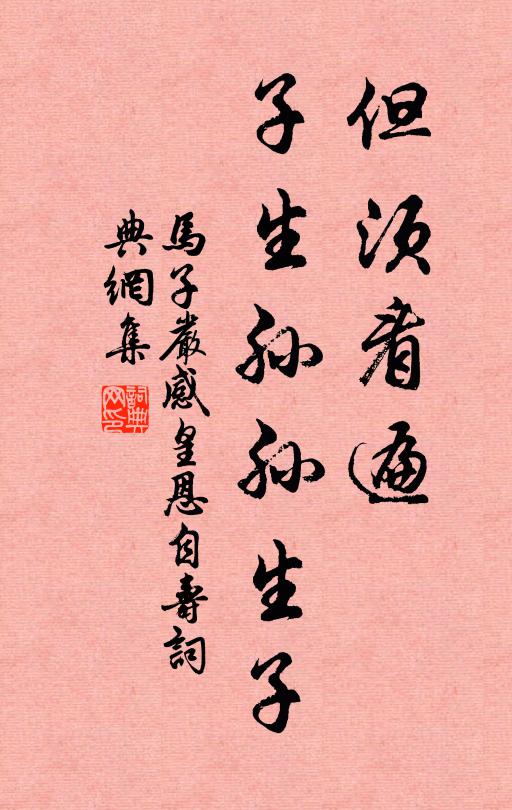 但须看遍
子生孙孙生子
馬子嚴感皇恩自壽詞
典網集
詞典
网印